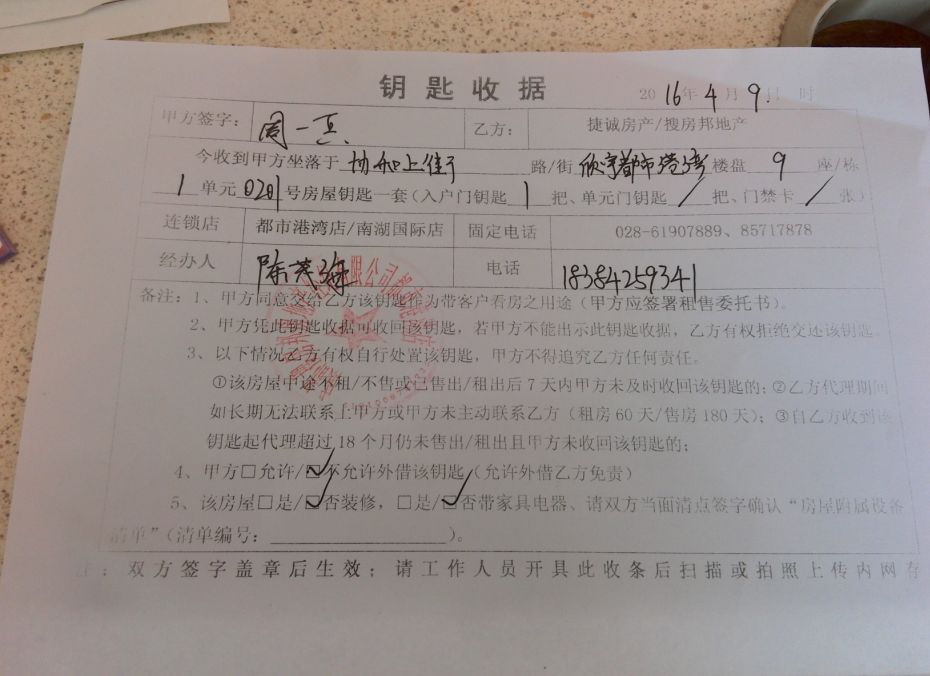 钥匙收据
2016年4月9日 时
甲方签字： 周一 乙方： 捷诚房产/搜房邦地产
今收到甲方坐落于协和上街 路/街 欣宇都市港湾楼盘 9 座/栋
1 单元0201号房屋钥匙一套（入户门钥匙 1 把、单元门钥匙 / 把、门禁卡 / 张）
连锁店 都市港湾店/南湖国际店 固定电话 028-61907889、85717878
经办人 陈 电话 18384259341
备注：1、甲方同意交给乙方该钥匙作为带客户看房之用途（甲方应签署租售委托书）。
2、甲方凭此钥匙收据可收回该钥匙，若甲方不能出示此钥匙收据，乙方有权拒绝交还该钥匙。
3、以下情况乙方有权自行处置该钥匙，甲方不得追究乙方任何责任。
①该房屋中途不租/不售或已售出/租出后7天内甲方未及时收回该钥匙的；②乙方代理期间
如长期无法联系上甲方或甲方未主动联系乙方（租房60天/售房180天）；③自乙方收到该
钥匙起代理超过18个月仍未售出/租出且甲方未收回该钥匙的；
4、甲方□允许/☑不允许外借该钥匙（允许外借乙方免责）
5、该房屋□是/☑否装修，□是/☑否带家具电器、请双方当面清点签字确认“房屋附属设备
清单”（清单编号：____________________）。
注：双方签字盖章后生效；请工作人员开具此收条后扫描或拍照上传内网存